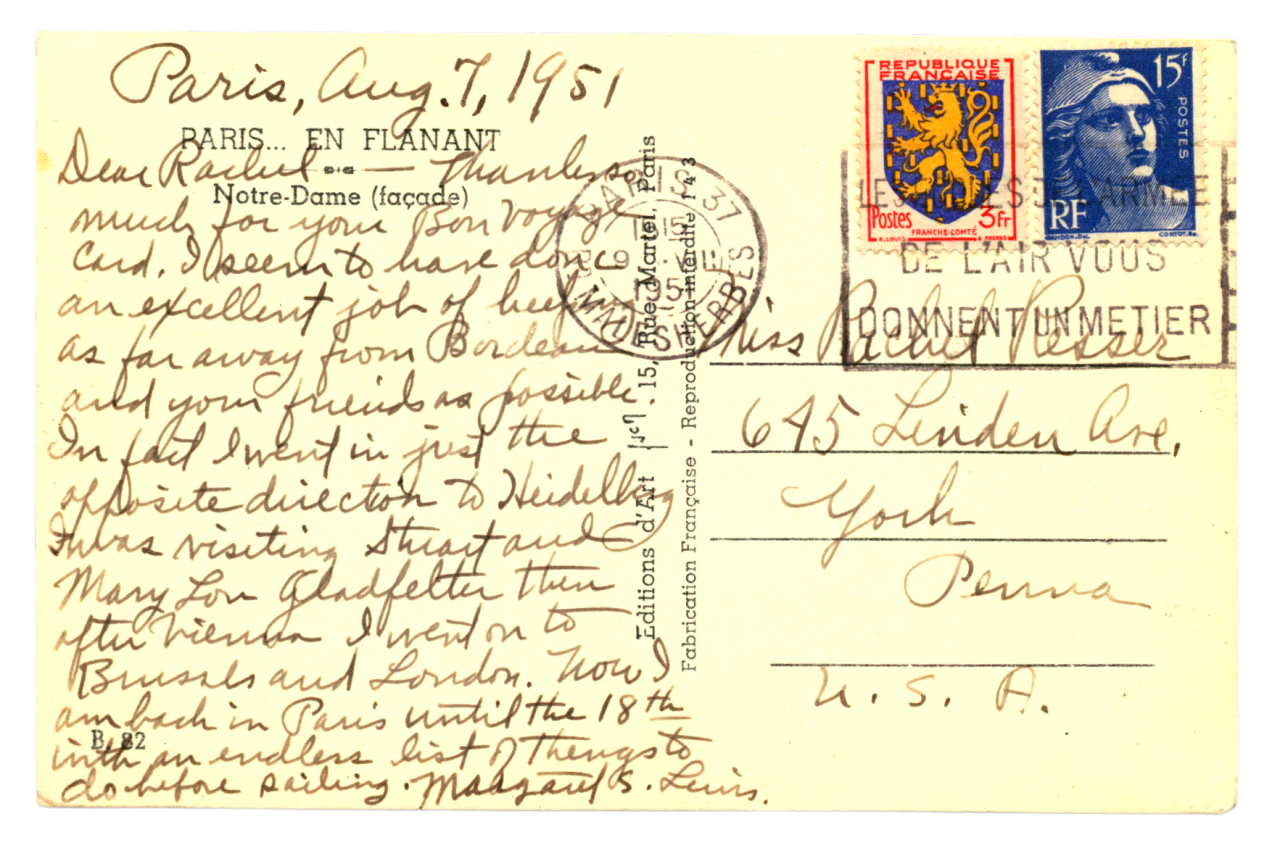 Paris, Aug. 7, 1951
PARIS... EN FLANANT
Notre-Dame (façade)
Dear Rachel — Thanks so
much for your Bon Voyage
Card. I seem to have done
an excellent job of being
as far away from Bordeaux
and your friends as possible.
In fact I went in just the
opposite direction to Heidelberg
I was visiting Stuart and
Mary Lou Gladfelter then
after Vienna I went on to
Brussels and London. Now I
am back in Paris until the 18th
B. 82
with an endless list of things to
do before sailing. Margaret S. Lewis.
Editions d'Art 15, Rue Martel, Paris
Fabrication Française - Reproduction interdite 143
PARIS 37
1951
MALESHERBES
REPUBLIQUE
FRANÇAISE
Postes 3Fr
FRANCHE-COMTÉ
15F
POSTES
RF
DE L'ARMEE
DE L'AIR VOUS
DONNENT UN METIER
Miss Rachel Resser
645 Linden Ave.
York
Penna
U. S. A.